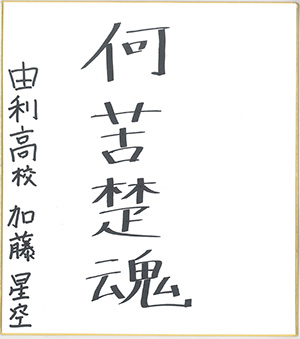 何苦楚魂
由利高校 加藤星空